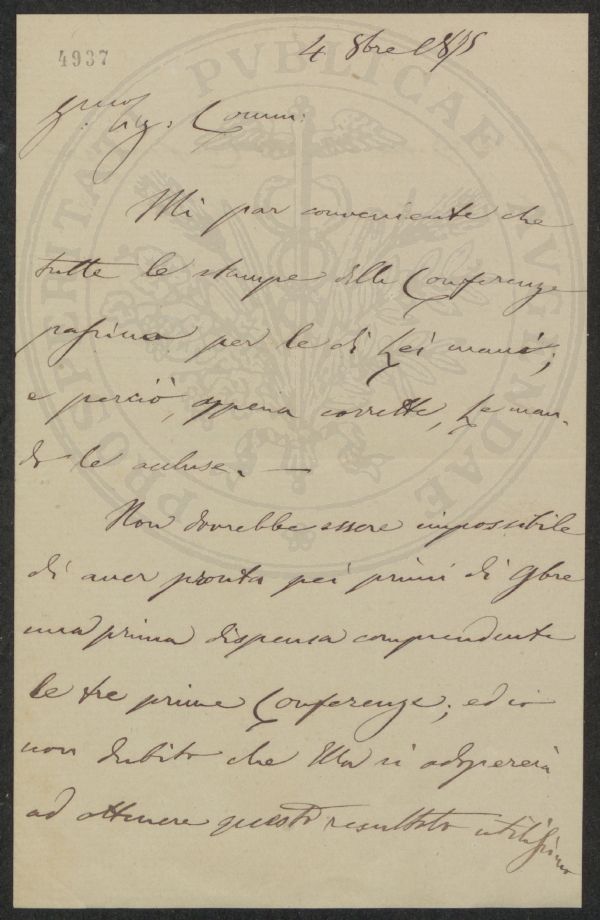 4937
4 8bre 1875
Sig: Comm:
PROSPERITATI PVBLICAE AVGENDAE
Mi par conveniente che
tutte le stampe delle Conferenze
passino per le di Lei mani;
e perciò, appena corrette, Le man-
do le accluse. —
Non dovrebbe essere impossibile
di aver pronta pei primi di 9bre
una prima dispensa comprendente
le tre prime Conferenze; ed io
non dubito che Ella si adopererà
ad ottenere questo resultato utilissimo